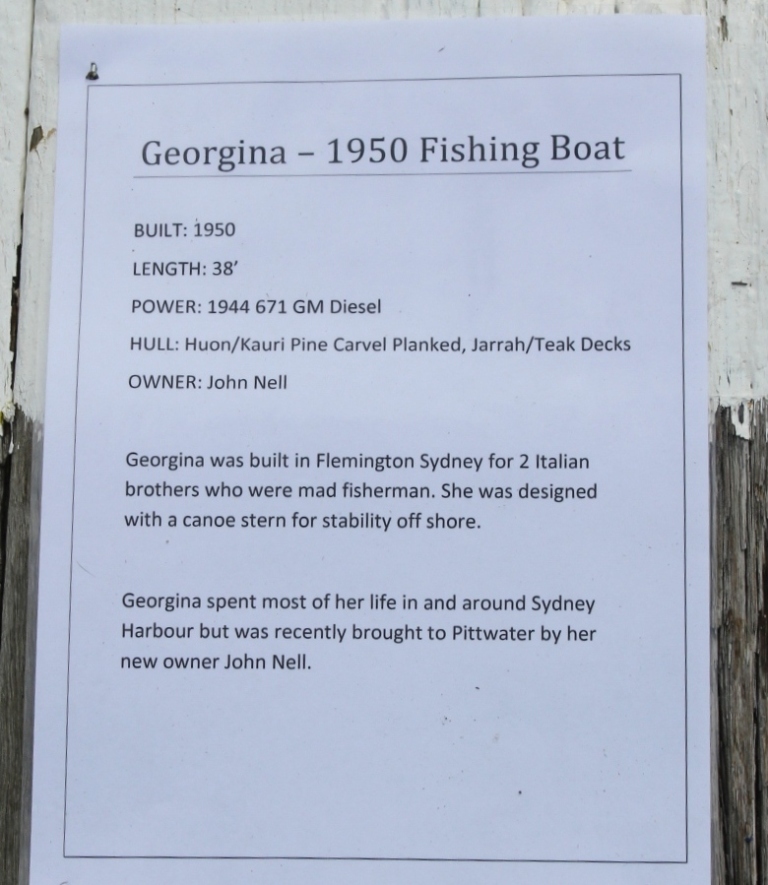 Georgina – 1950 Fishing Boat
BUILT: 1950
LENGTH: 38’
POWER: 1944 671 GM Diesel
HULL: Huon/Kauri Pine Carvel Planked, Jarrah/Teak Decks
OWNER: John Nell
Georgina was built in Flemington Sydney for 2 Italian
brothers who were mad fisherman. She was designed
with a canoe stern for stability off shore.
Georgina spent most of her life in and around Sydney
Harbour but was recently brought to Pittwater by her
new owner John Nell.